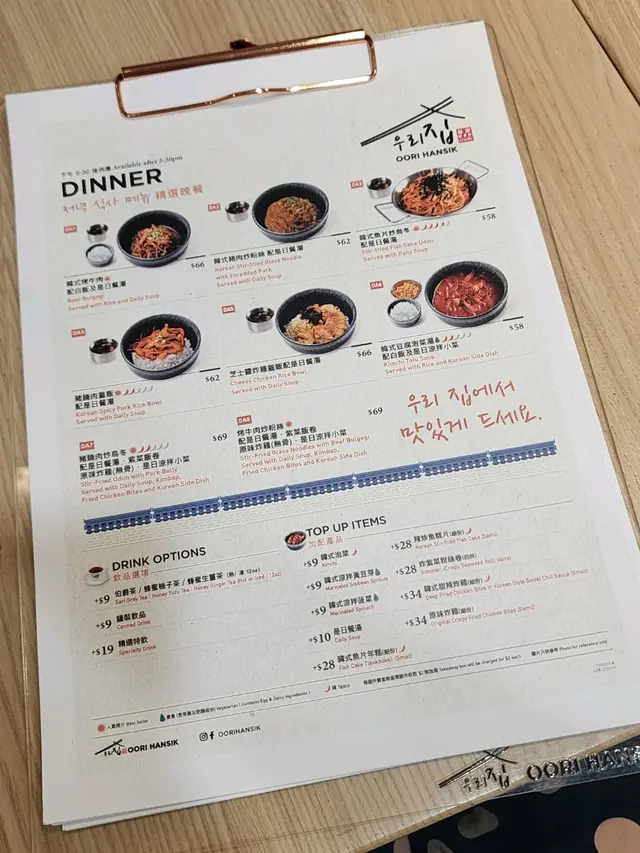 우리집
OORI HANSIK
下午 5:30 後供應 Available after 5:30pm
DINNER
저녁 식사 메뉴 精選晚餐
DA1
$66
韓式烤牛肉
配白飯及是日餐湯
Beef Bulgogi
Served with Rice and Daily Soup
DA2
$62
韓式豬肉炒粉絲 配是日餐湯
Korean Stir-fried Glass Noodle
with Shredded Pork
Served with Daily Soup
DA3
$58
韓式魚片炒烏冬
配是日餐湯
Stir-fried Fish Cake Udon
Served with Daily Soup
$62
豬腩肉蓋飯
配是日餐湯
Korean Spicy Pork Rice Bowl
Served with Daily Soup
DA5
$66
芝士醬炸雞蓋飯配是日餐湯
Cheesy Chicken Rice Bowl
Served with Daily Soup
$58
韓式豆腐泡菜湯
配白飯及是日涼拌小菜
Kimchi Tofu Soup
Served with Rice and Korean Side Dish
DA7
$69
豬腩肉炒烏冬
配是日餐湯、紫菜飯卷
原味炸雞(無骨)、是日涼拌小菜
Stir-Fried Udon with Pork Belly
Served with Daily Soup, Kimbap,
Fried Chicken Bites and Korean Side Dish
DA8
$69
烤牛肉炒粉絲
配是日餐湯、紫菜飯卷
原味炸雞(無骨)、是日涼拌小菜
Stir-Fried Glass Noodles with Beef Bulgogi
Served with Daily Soup, Kimbap,
Fried Chicken Bites and Korean Side Dish
우리 집에서
맛있게 드세요.
DRINK OPTIONS
飲品選項
+$9 伯爵茶 / 蜂蜜柚子茶 / 蜂蜜生薑茶 (熱 / 凍 12oz)
Earl Grey Tea / Honey Yuzu Tea / Honey Ginger Tea (hot w/ iced / 12oz)
+$9 罐裝飲品
Canned Drink
+$19 精選特飲
Specialty Drink
TOP UP ITEMS
加配產品
+$9 韓式泡菜
Kimchi
+$9 韓式涼拌黃豆芽
Marinated Soybean Sprouts
+$9 韓式涼拌菠菜
Marinated Spinach
+$10 是日餐湯
Daily Soup
+$28 韓式魚片年糕 (細份)
Fish Cake Tteokbokki (Small)
+$28 辣炒魚糕片 (細份)
Korean Stir-fried Fish Cake (Small)
+$28 炸紫菜粉絲卷 (四件)
Gimmari (Crispy Seaweed Roll) (4pcs)
+$34 韓式甜辣炸雞 (細份)
Deep Fried Chicken Bites in Korean Style Sweet Chili Sauce (Small)
+$34 原味炸雞 (細份)
Original Crispy Fried Chicken Bites (Small)
人氣推介 Best Seller
Vegetarian ( Contains Egg & Dairy Ingredients )
辣 Spicy
Takeaway box will be charged for $2 each.
圖片只供參考 Photo for reference only
우리집 OORI HANSIK
OORIHANSIK
우리집 OORI HANSIK